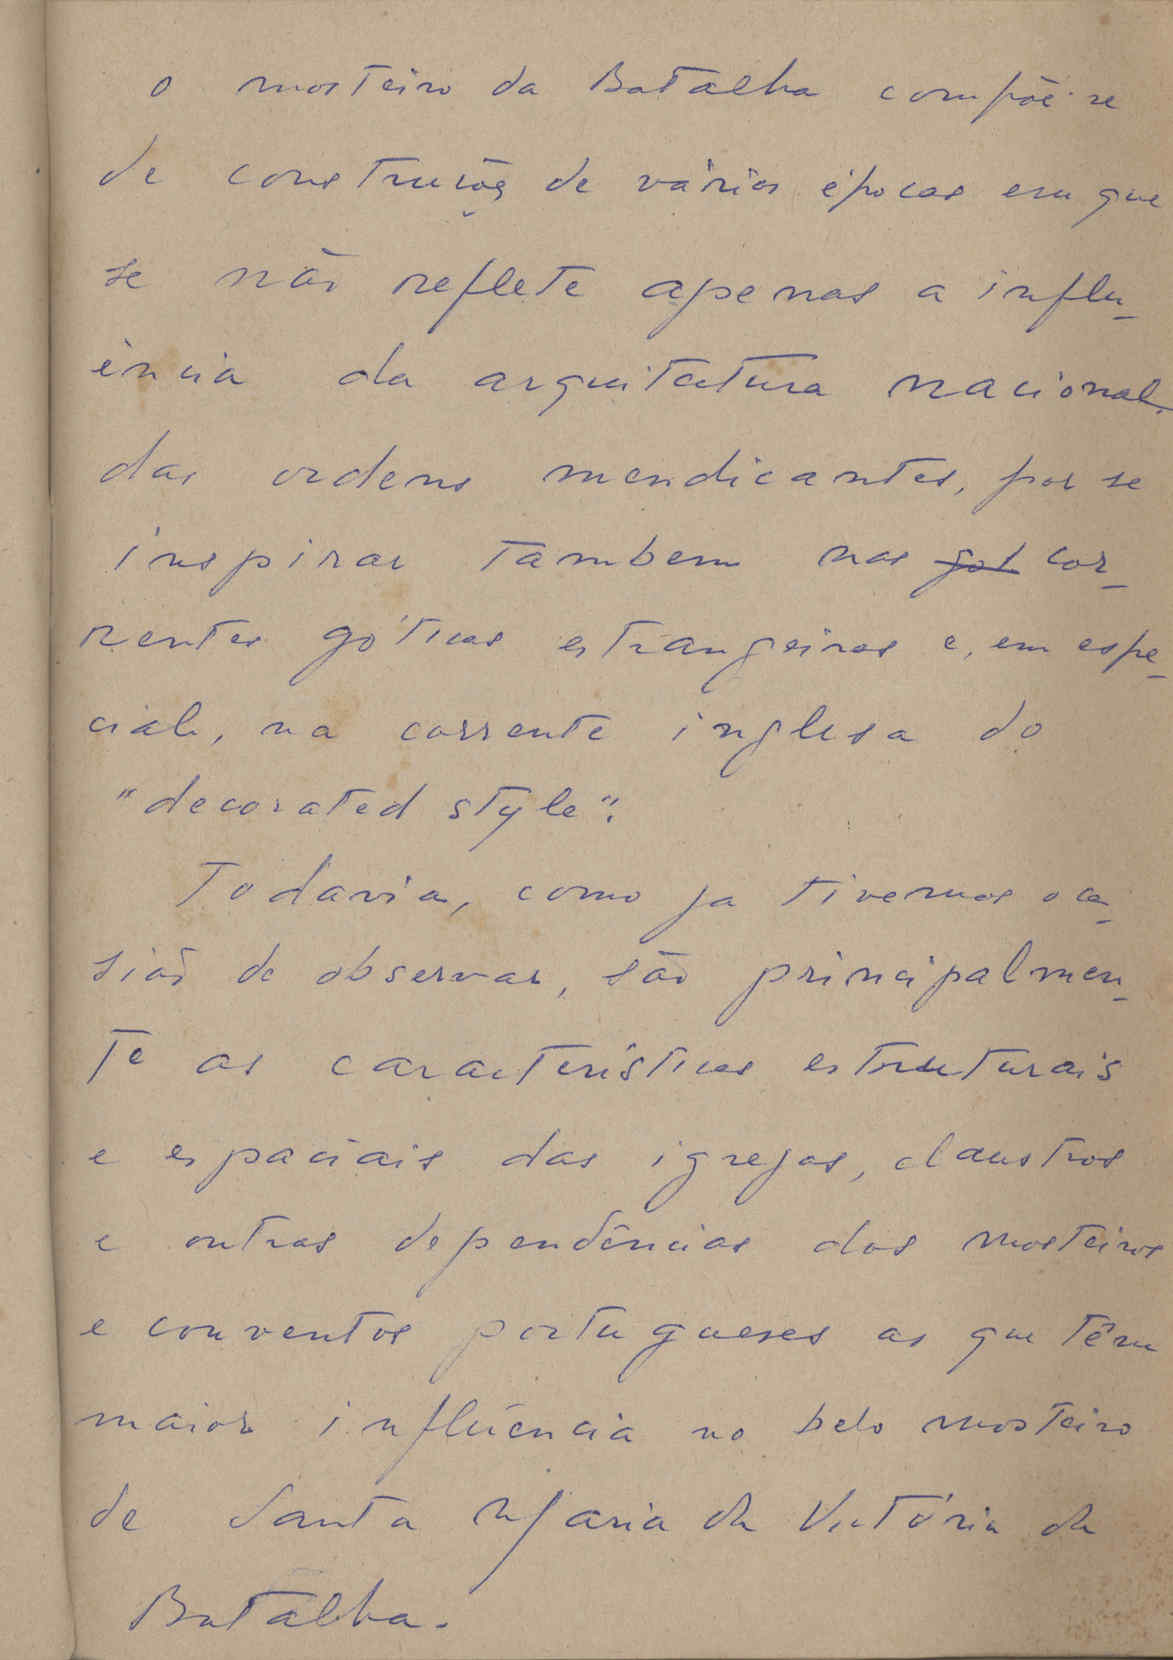 o mosteiro da Batalha compõe-se
de construções de várias épocas em que
se não reflete apenas a influ-
ência da arquitectura nacional
das ordens mendicantes, por se
inspirar tambem nas got cor-
rentes góticas estrangeiras e, em espe-
cial, na corrente inglesa do
"decorated style".
Todavia, como ja tivemos oca-
sião de observar, são principalmen-
te as caracteristicas estruturais
e espaciais das igrejas, claustros
e outras dependências dos mosteiros
e conventos portugueses as que têm
maior influência no belo mosteiro
de Santa Maria da Vitória da
Batalha.